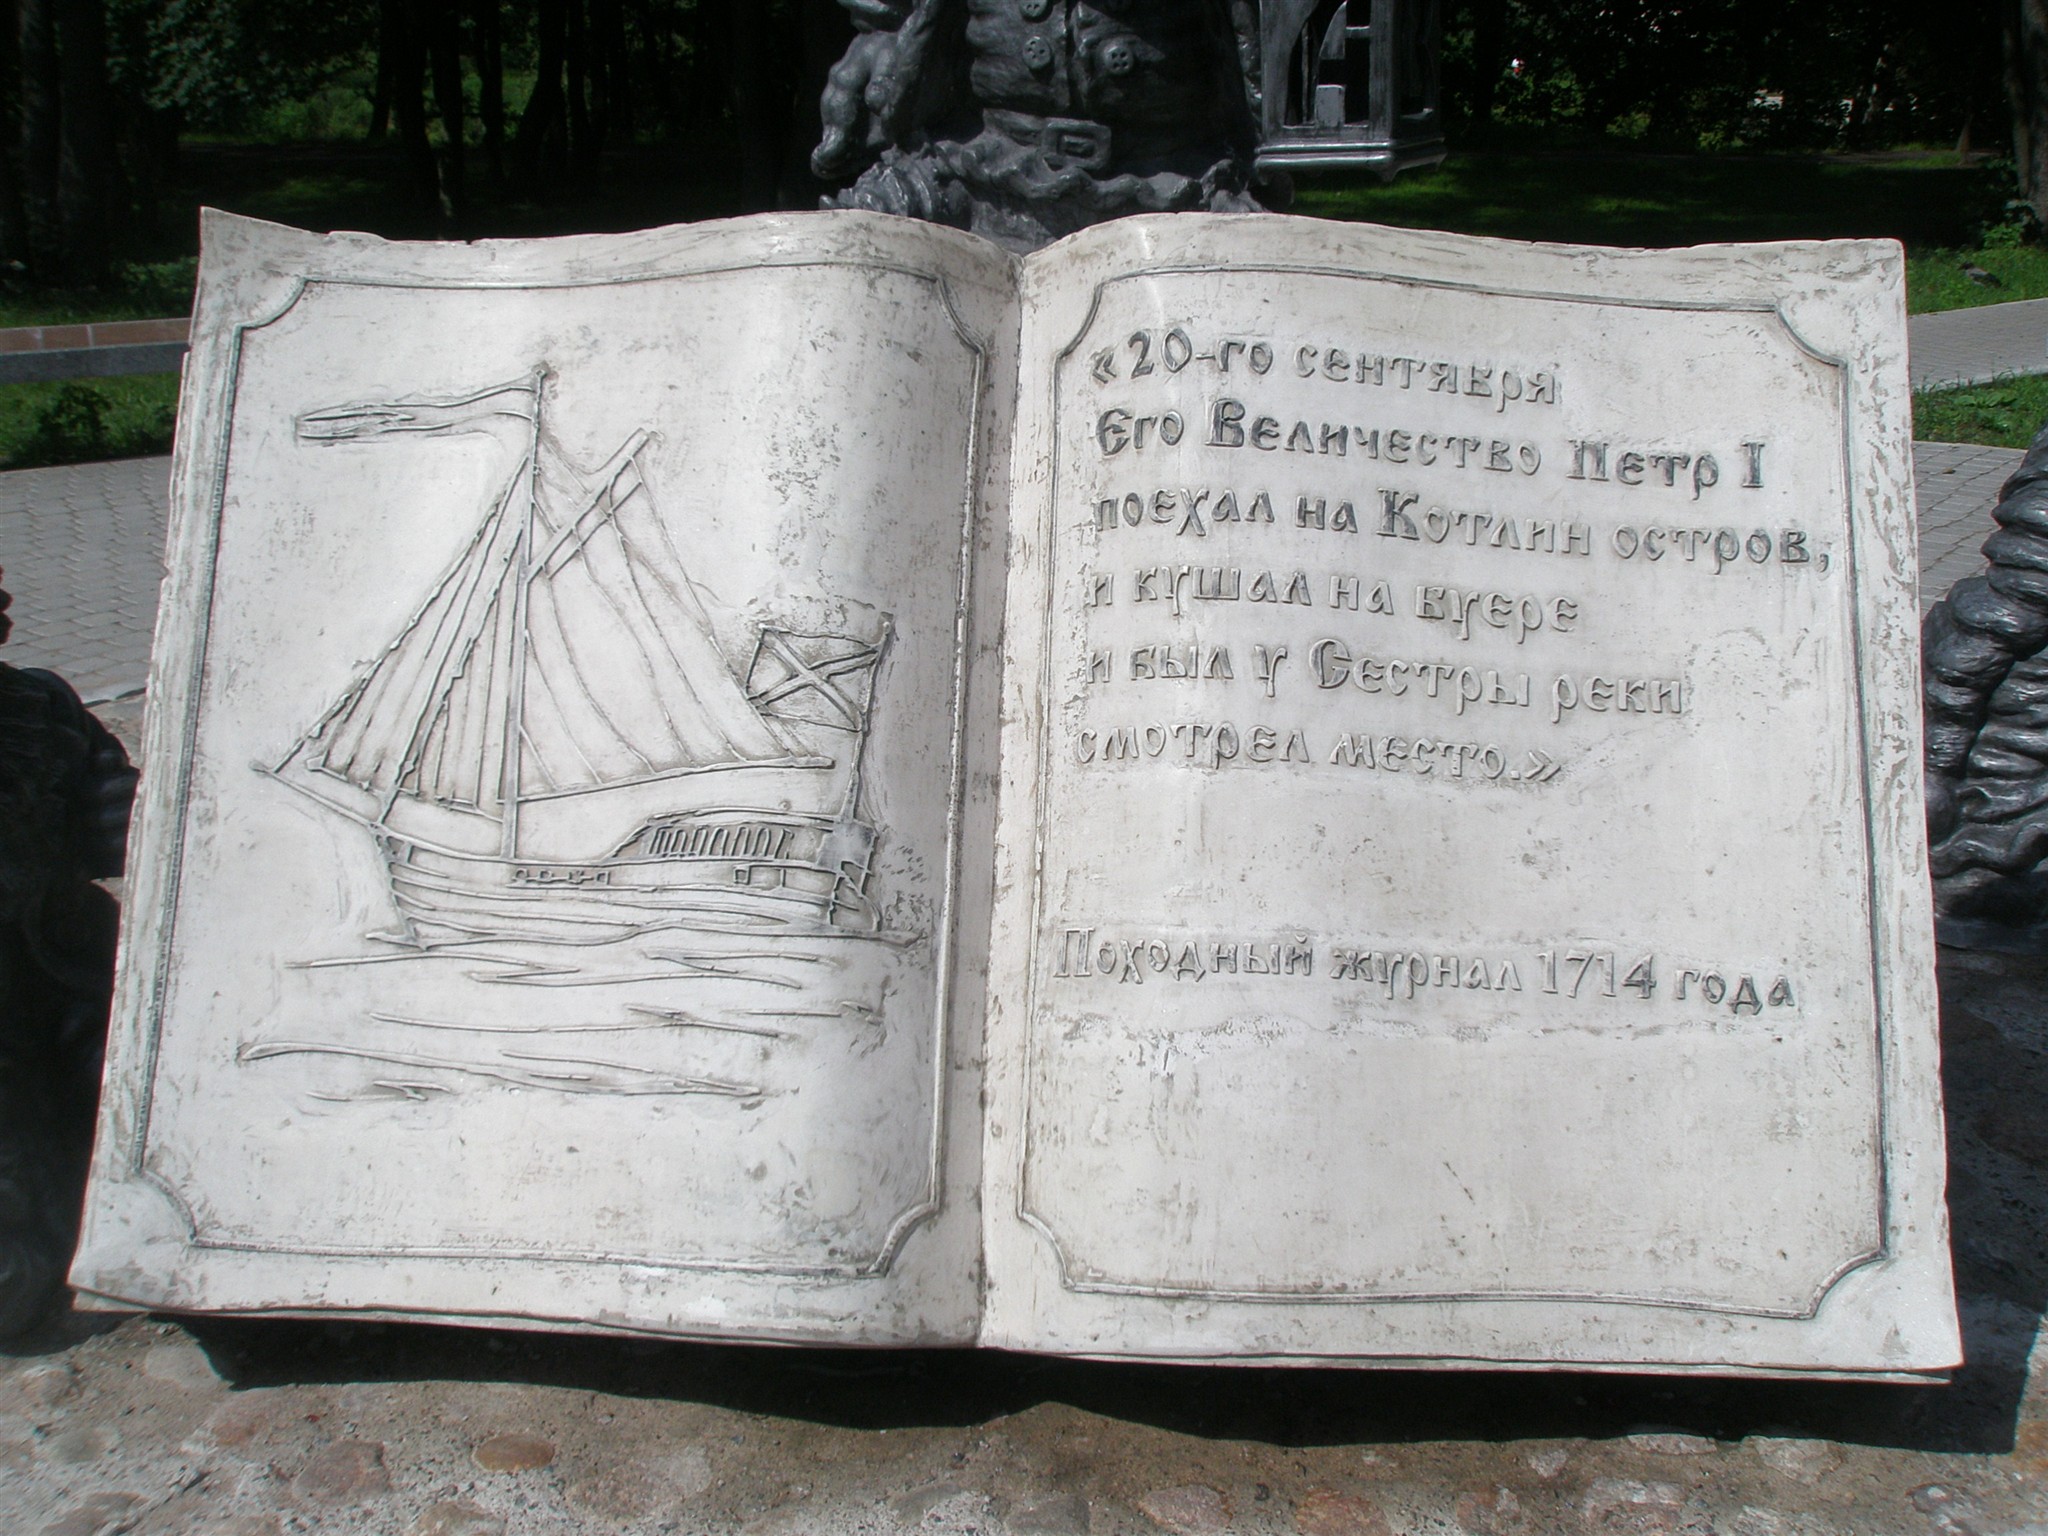 «20-го сентября
Его Величество Петр I
поехал на Котлин остров,
и кушал на буере
и был у Сестры реки
смотрел место.»
Походный журнал 1714 года